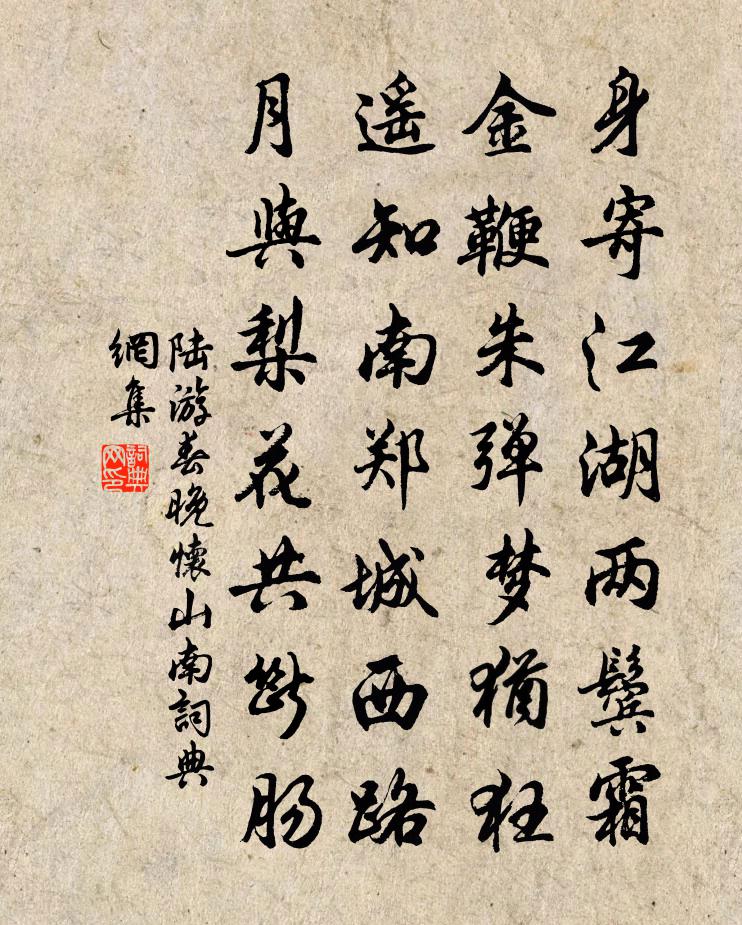 身寄江湖两鬓霜
金鞭朱弹梦犹狂
遥知南郑城西路
月與梨花共断肠
陆游春晚懷山南詞典
網集
詞典
网印